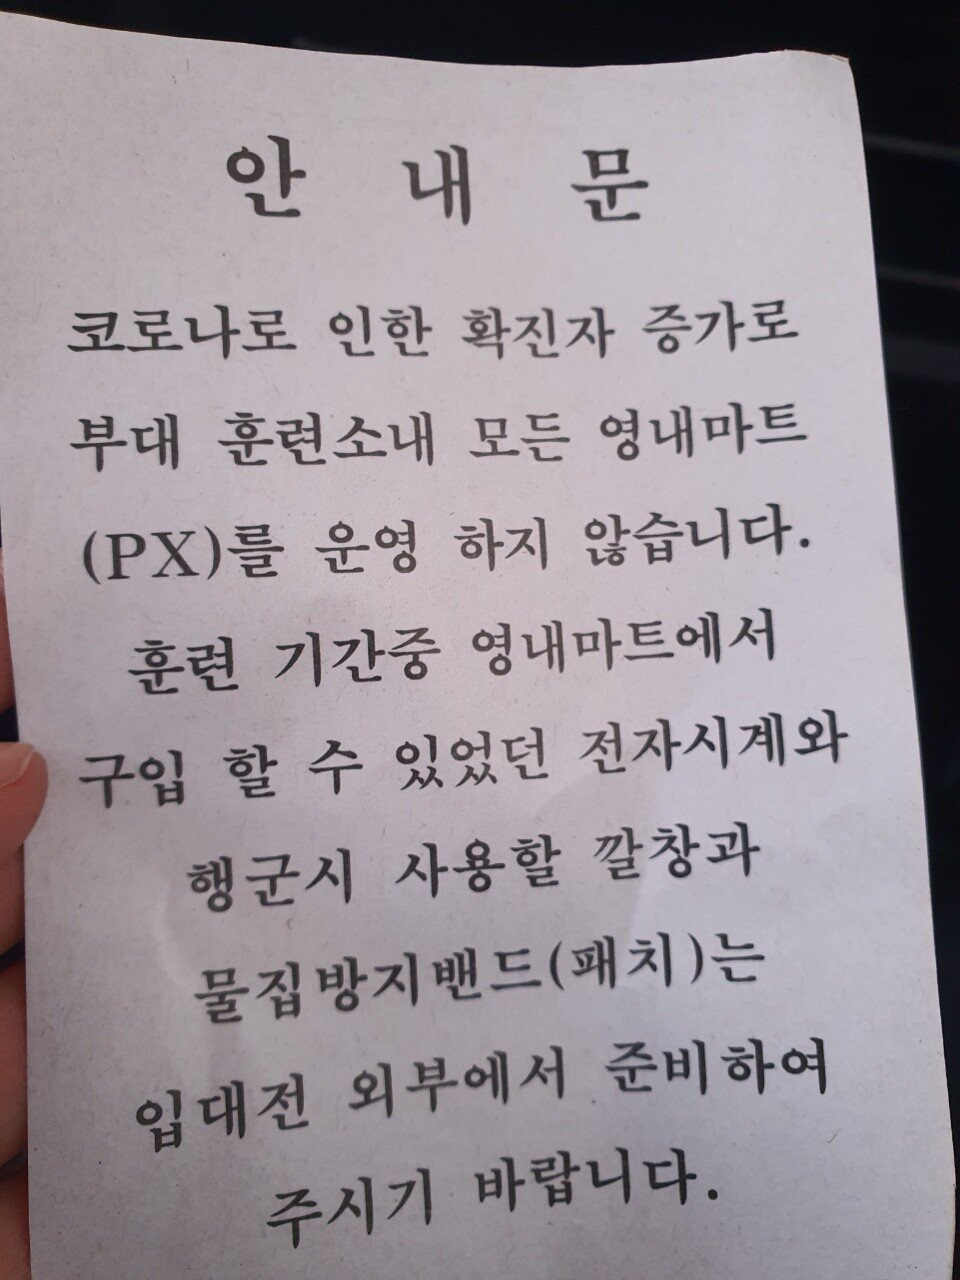 안 내 문
코로나로 인한 확진자 증가로
부대 훈련소내 모든 영내마트
(PX)를 운영 하지 않습니다.
훈련 기간중 영내마트에서
구입 할 수 있었던 전자시계와
행군시 사용할 깔창과
물집방지밴드(패치)는
입대전 외부에서 준비하여
주시기 바랍니다.